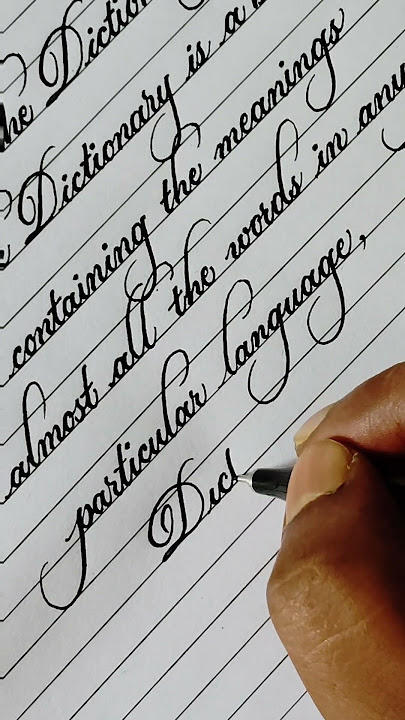 the Diction
Dictionary is a
containing the meanings
almost all the words in any
particular language,
Dict